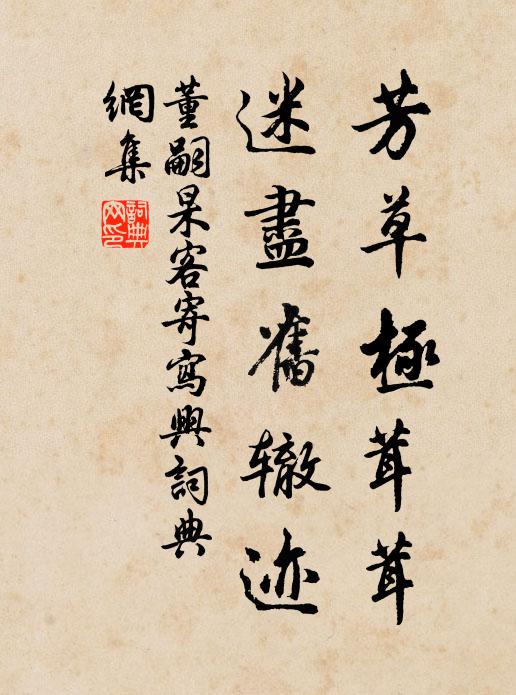 芳草極茸茸
迷盡舊辙迹
董嗣杲客寄寫興詞典
網集
詞典网印